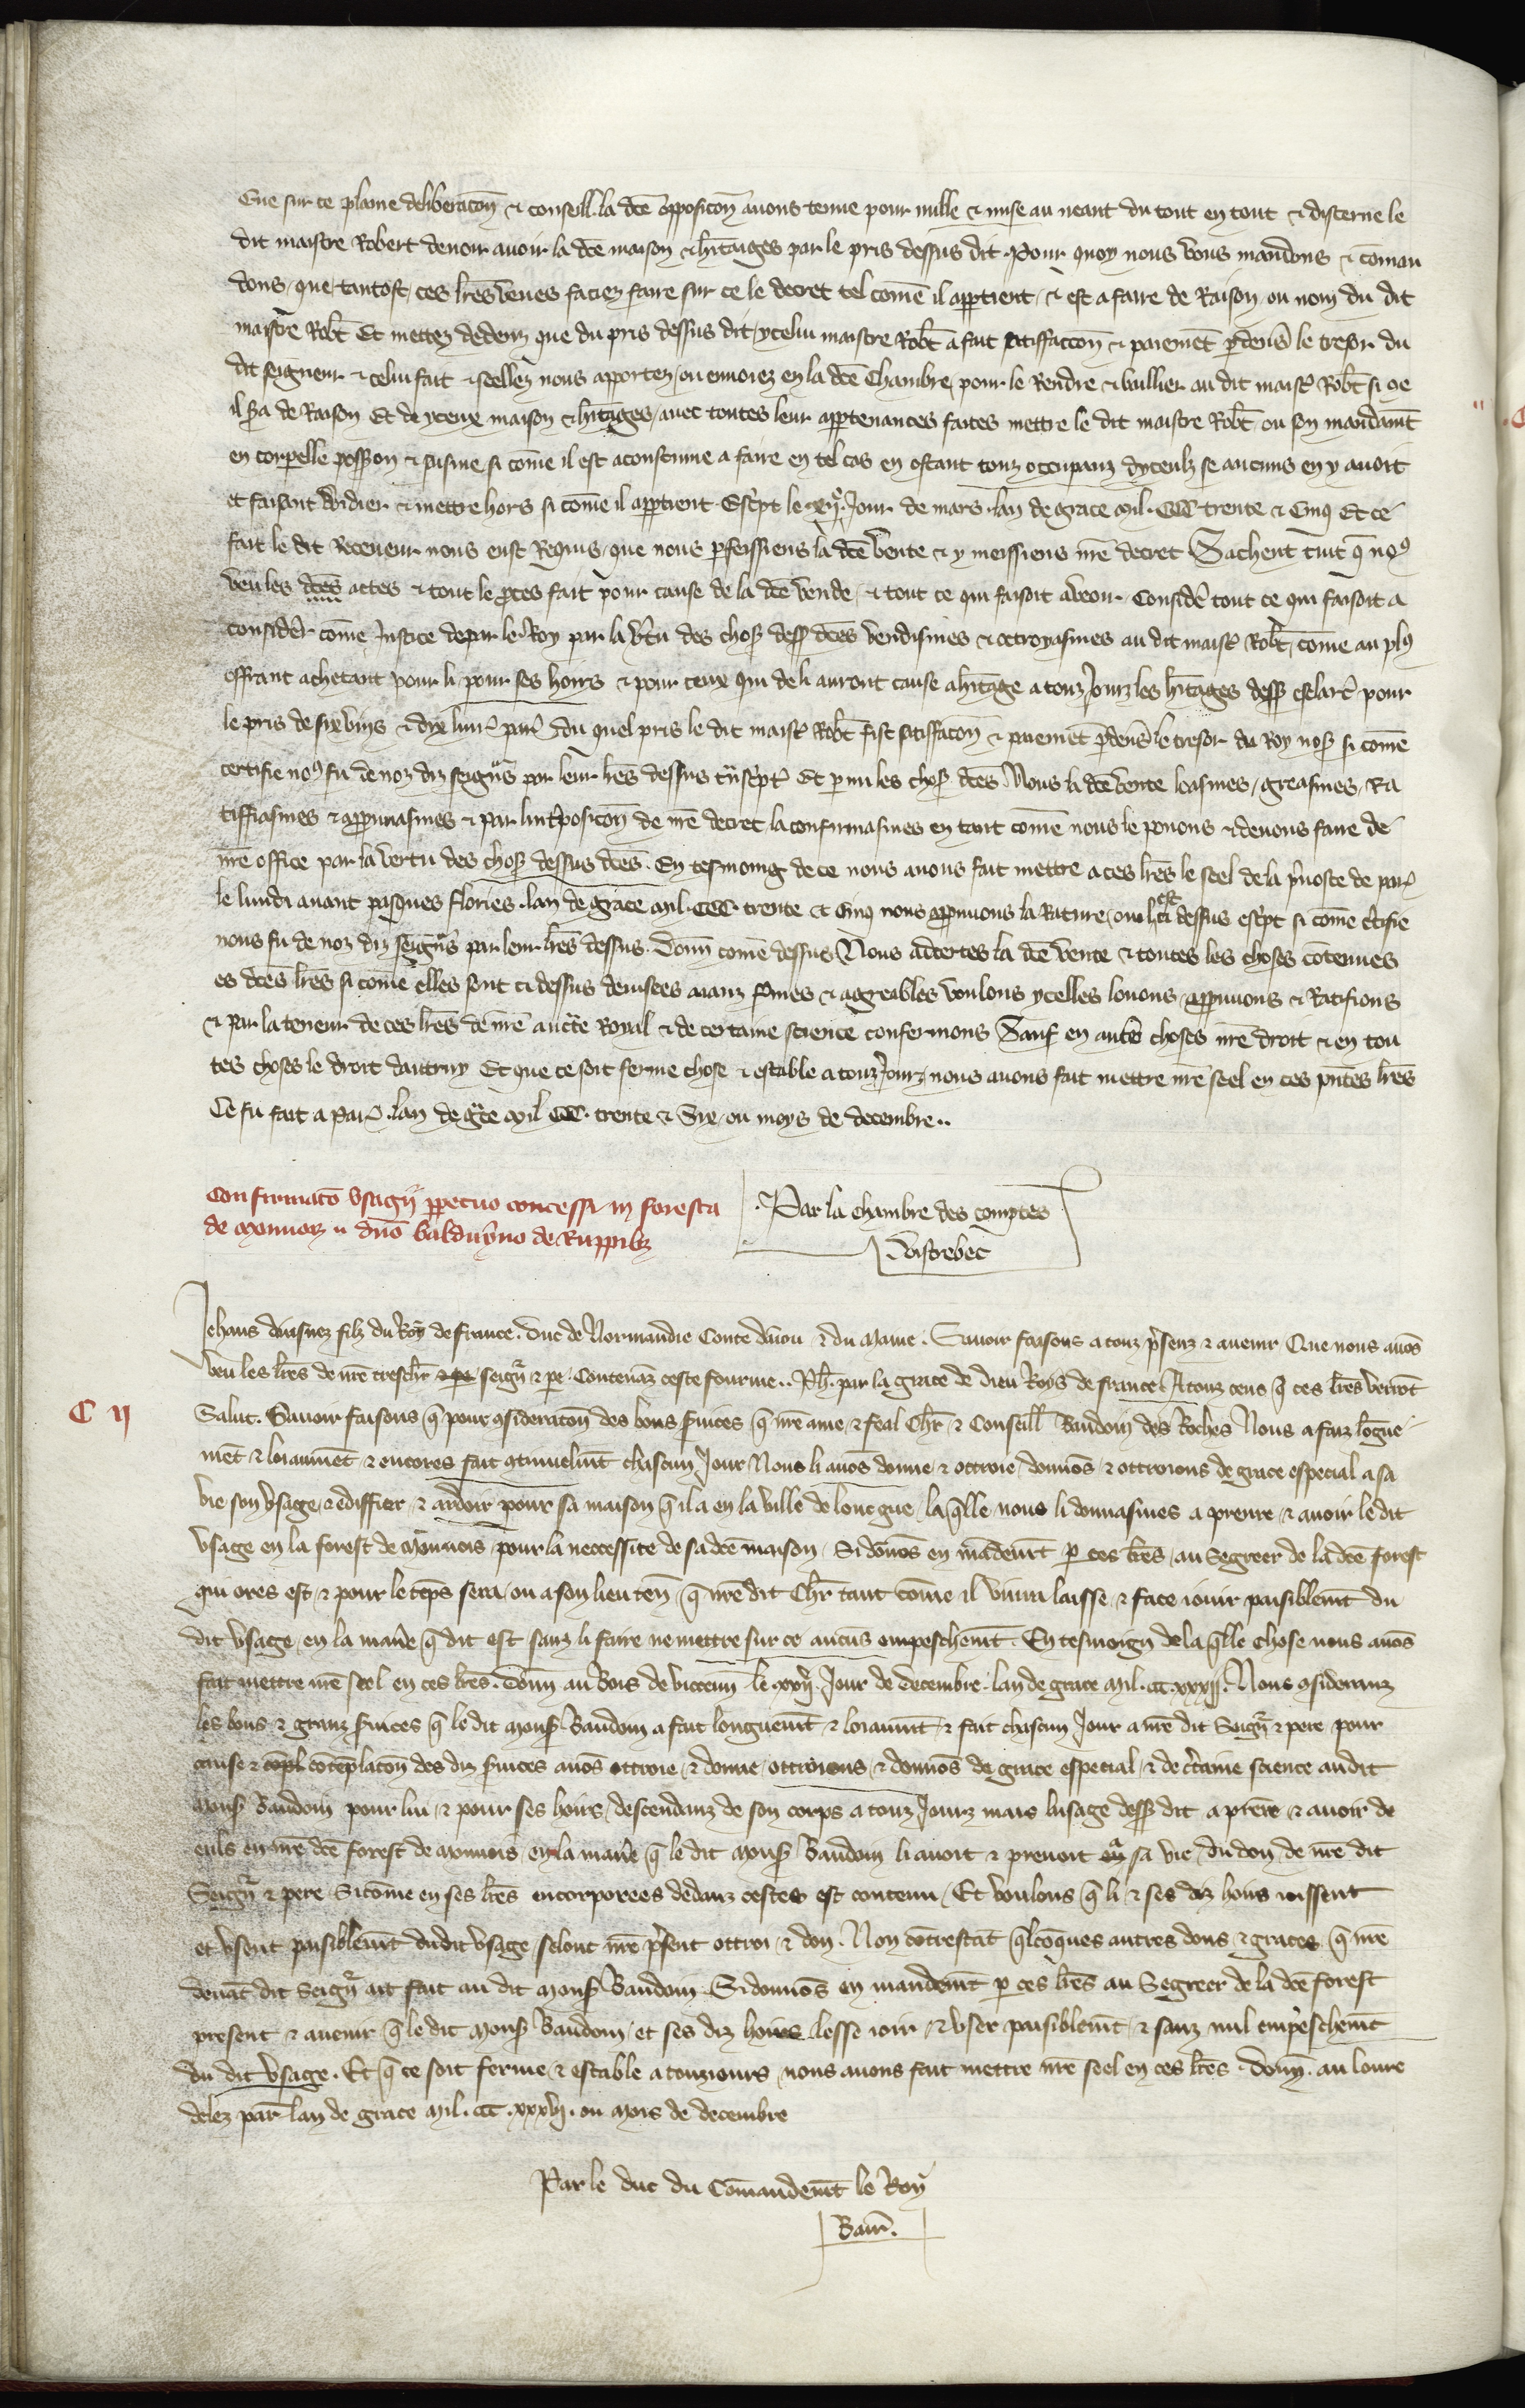 Eue sur ce plaine deliberacoñ & conseill. la dcẽ opposicoñ auons tenue pour nulle & mise au neant du tout en tout & discerne le
dit maistre Robert deuoir auoir la dcẽ maison & hitaiges par le pris dessus dit. Pour quoy nous vous mandons & coman
dons que tantost ces lrẽs veues faciez faire sur ce le decret tel comẽ il appartient & est a faire de Raison ou nom du dit
maistre Robt̃ Et mettez dedenz que du pris dessus dit ycelui maistre Robt̃ a fait satiffaccoñ & paiemẽt p deuers le tresor du
dit seigneur & celui fait & seellez nous apportez ou enuoiez en la dcẽ Chambre pour le Rendre & baillier au dit maist Robt̃ si qe
il sa de Raison Et de yceux maison & hitages auec toutes leur appartenances faites mettre le dit maistre Robt̃ ou son mandamt̃
en corpelle possion & saisine si comẽ il est acoustume a faire en tel cas en ostant touz occupanz dyceulz se aucuns en y auoit
et faisant vuidier & mettre hors si comẽ il appartient. Escpt le xijᵉ. Jour de mars lan de grace mil. CCC trente & Cinq Et ce
fait le dit Receueur nous eust Requis que nous pfeissiens la dcẽ vente & y meissiens nrẽ decret Sachent tuit q̃ no⁹
veu les dcẽs actes & tout le pces fait pour cause de la dcẽ vende & tout ce qui faisoit a veoir Consider tout ce qui faisoit a
considerer comẽ Justice depar le Roy par la vtu des chos dess dcẽs vendismes & octroyasmes au dit maist Robt̃ comẽ au pl⁹
offrant achetant pour li pour ses hoirs & pour ceux qui de li auront cause a hitage a touz Jourz les hitages dess esclarc pour
le pris de six vins & dix liur par du quel pris le dit maist Robt̃ fist satiffacoñ & paiemẽt pdeuers le tresor du Roy nos si comẽ
certifie no⁹ fu de noz diz seigns par leur lrẽs dessus tnscpt Et parmi les chos dcẽs Nous la dcẽ vente loasmes greasmes Ra
tiffiasmes & appruuasmes & par lintposicoñ de nrẽ decret la confirmasmes en tant comẽ nous le pouons & deuons faire de
nrẽ office par la vertu des chos dessus dcẽs. En tesmoing de ce nous auons fait mettre a ces lrẽs le scel de la puoste de par
le lundi auant pasques flories. lan de grace mil. CCC. trente & Cinq nous appruuons la Rature ou ci dessus escpt si comẽ ctifie
nous fu de noz diz seigns par leur lrẽs dessus. Donn comẽ dessus Nous adcertes la dcẽ vente & toutes les choses cõtenues
es dcẽs lrẽs si comẽ elles sont ci dessus deuisees aianz fmes & aggreables voulons ycelles louons appruuons & Ratifions
& par la teneur de ces lrẽs de nrẽ aucte Royal & de certaine science confermons Sauf en autres choses nrẽ droit & en tou
tes choses le droit dautruy Et que ce soit ferme chose & estable a touz Jourz nous auons fait mettre nrẽ seel en ces pntes lrẽs
Ce fu fait a Par lan de gce mil CCC. trente & Six ou moys de decembre..
Confirmatõ vsagij perpetuo concessi in foresta
de Monnois dnõ balduyno de Ruppibz
Par la chambre des comptes
Vistrebec
C ij
Jehans dainsnez filz du Roy de france. Duc de Normandie Conte danion & du Maine. Sauoir faisons a touz psenz & auenir Que nous auõs
veu les lrẽs de nrẽ treschr̃ & pe seign & pe Contenãz ceste fourme.. Ph̃. par la grace de dieu Roys de france A touz ceus q̃ ces lrẽs verrõt
Salut. Sauoir faisons q̃ pour 9sideracoñ des bons suices q̃ nrẽ ame & feal Chr̃ & Conseill Baudoin des Roches Nous a faiz lõgue
mẽt & loiaumẽt & encores fait 9tinuelmt̃ chascun Jour Nous li auõs donne & ottroie donnõs & ottroions de grace especial a sa
vie son vsage a ediffier & ardoir pour sa maison q̃ il a en la ville de longue la q̃lle nous li donnasmes a prenre & auoir le dit
vsage en la forest de Monnois pour la neccessite de sa dcẽ maison. Si donõs en mãdemt̃ p ces lrẽs au Segreer de la dcẽ forest
qui ores est & pour le tẽps sera ou a son lieu ten q̃ nrẽ dit Chr̃ tant comẽ il viura laisse & face iouir paisiblemt̃ du
dit vsage en la manẽ q̃ dit est sanz li faire ne mettre sur ce aucũs empeschemt̃. En tesmoign de la q̃lle chose nous auõs
fait mettre nrẽ seel en ces lrẽs. Donñ au Bois de vicenñ le xxij. Jour de decembre. lan de grace Mil. CCC. xxxij. Nous 9sideranz
les bons & granz suices q̃ le dit Mons Baudoin a fait longuemt̃ & loiaumt̃ & fait chascun Jour a nrẽ dit Seign & pere pour
cause & copl cõtẽplacoñ des diz suices auõs ottroie & donne ottroions & donnõs de grace especial & de ctaine science au dit
Mons Baudoin pour lui & pour ses hoirs descendanz de son corps a touz Jourz mais lusage dess dit a prẽre & auoir de
euls en nrẽ dcẽ forest de Monnois en la manẽ q̃ le dit Mons Baudoin li auoit & prenoit a sa vie du don de nrẽ dit
Seign & pere Si comẽ en ses lrẽs encorporees dedanz cestes est contenu Et voulons q̃ li & ses diz hoirs ioissent
et vsent paisiblemt̃ dudit vsage selonc nrẽ psent ottroi & don. Non cõtrestãt q̃lcõques autres dons & graces q̃ nrẽ
deuãt dit Seign ait fait au dit Mons Baudoin Si donnõs en mandemt̃ p ces lrẽs au Segreer de la dcẽ forest
present & auenir q̃ le dit Mons Baudoin et ses diz hoirs lesse ioir & vser paisiblemt̃ & sanz nul empeschemt̃
du dit vsage. Et q̃ ce soit ferme & estable a touziours nous auons fait mettre nrẽ seel en ces lrẽs. Donñ. au loure
delez par lan de grace Mil. CCC. xxxvj. ou Mois de decembre
Par le duc du Comandemt̃ le Roy
Bam.